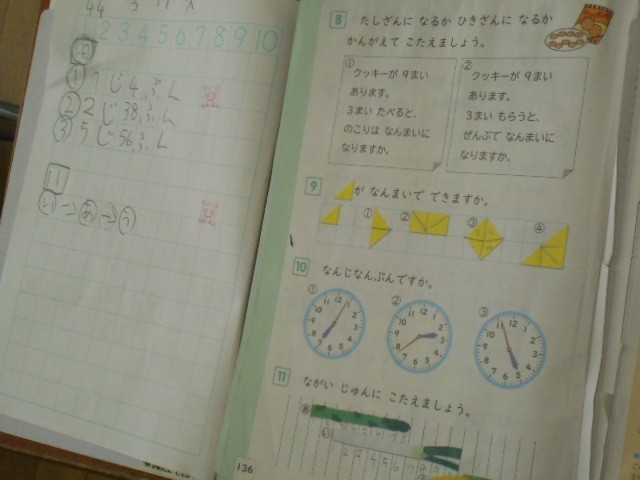 44
1 2 3 4 5 6 7 8 9 10
① 7じ4ふん
② 2じ38ふん
③ 5じ56ふん
11
い→あ→う
8 たしざんに なるか ひきざんに なるか
かんがえて こたえましょう。
①
クッキーが 9まい
あります。
3まい たべると、
のこりは なんまいに
なりますか。
②
クッキーが 9まい
あります。
3まい もらうと、
ぜんぶで なんまいに
なりますか。
9 が なんまいで できますか。
① ② ③ ④
10 なんじなんぷんですか。
① ② ③
12 1 2 3 4 5 6 7 8 9 10 11
12 1 2 3 4 5 6 7 8 9 10 11
12 1 2 3 4 5 6 7 8 9 10 11
11 ながい じゅんに こたえましょう。
あ
い
136